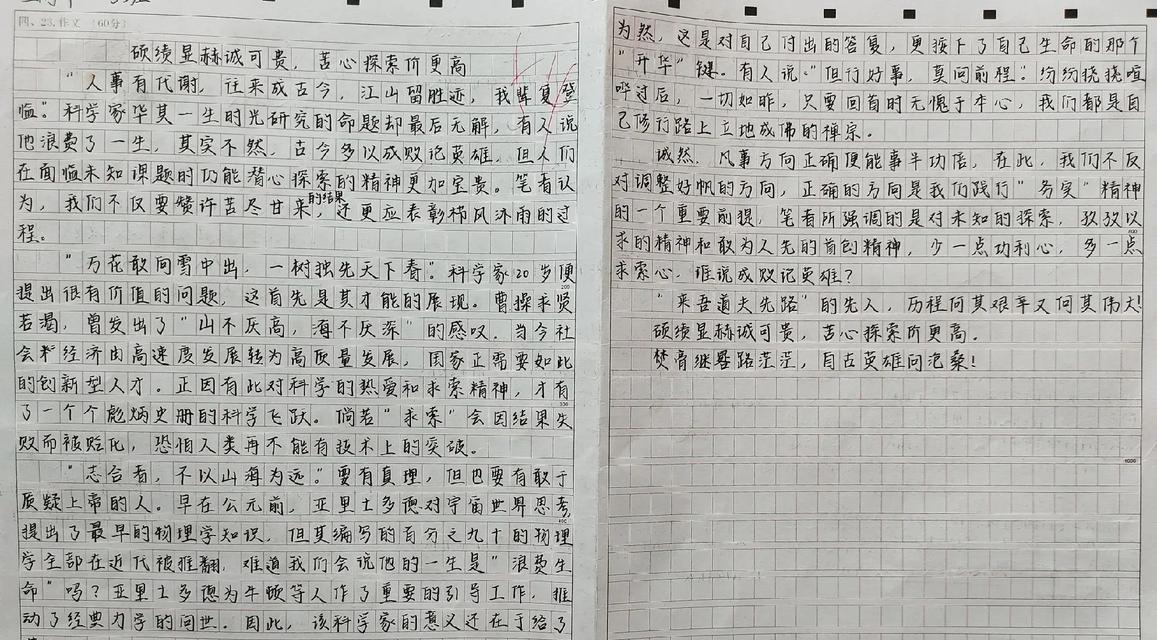 四、23.作文（60分）
硕绩显赫诚可贵，苦心探索价更高
“人事有代谢，往来成古今，江山留胜迹，我辈复登
临”。科学家毕其一生时光研究的命题却最后无解，有人说
他浪费了一生，其实不然，古今多以成败论英雄，但人们
在面临未知课题时仍能潜心探索的精神更加宝贵。笔者认
为，我们不仅要赞许苦尽甘来的结果，还更应表彰栉风沐雨的过
程。
“万花敢向雪中出，一树独先天下春”。科学家20岁便
提出很有价值的问题，这首先是其才能的展现。曹操求贤
若渴，曾发出了“山不厌高，海不厌深”的感叹，当今社
会来经济由高速度发展转为高质量发展，国家正需要如此
的创新型人才。正因有此对科学的热爱和求索精神，才有
了一个个彪炳史册的科学飞跃。倘若“求索”会因结果失
败而被贬化，恐怕人类再不能有技术上的突破。
“志合者，不以山海为远。”要有真理，但也要有敢于
质疑上帝的人。早在公元前，亚里士多德对宇宙世界思考，
提出了最早的物理学知识，但其编写的百分之九十的物理
学全部在近代被推翻，难道我们会说他的一生是“浪费生
命”吗？亚里士多德为牛顿等人作了重要的引导工作，推
动了经典力学的问世。因此，该科学家的意义还在于给了
为然，这是对自己付出的答复，更按下了自己生命的那个
“升华”键。有人说：“但行好事，莫问前程。”纷纷挠挠喧
哗过后，一切如昨，只要回首时无愧于本心，我们都是自
己修行路上立地成佛的禅宗。
诚然，凡事方向正确便能事半功倍，在此，我们不反
对调整好帆的方向，正确的方向是我们践行“务实”精神
的一个重要前提，笔者所强调的是对未知的探索，孜孜以
求的精神和敢为人先的首创精神，少一点功利心，多一点
求索心，谁说成败记英雄？
“来吾道夫先路”的先人，历程何其艰辛又何其伟大！
硕绩显赫诚可贵，苦心探索价更高。
焚膏继晷路茫茫，自古英雄问沧桑！